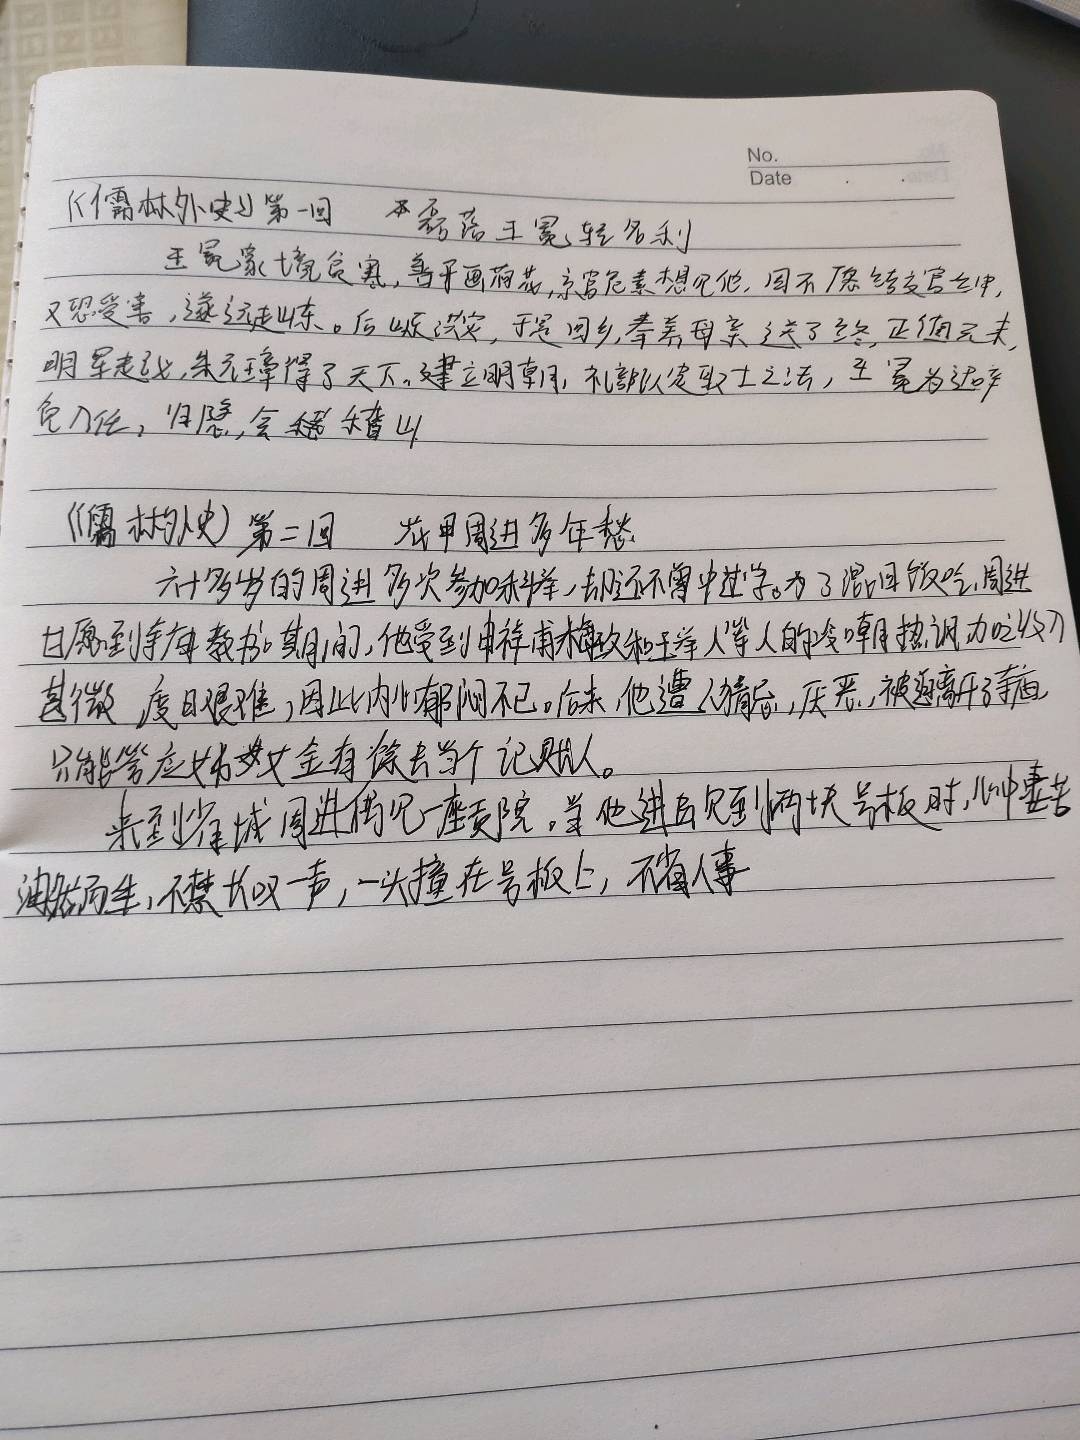 No.
Date
《儒林外史》第一回 本磊落王冕轻名利
王冕家境贫寒，善于画荷花，京官危素想见他，因不愿结交官
又恐受害，遂远走山东。后 ，于是回乡，奉养母亲送了终，正值元末
明军起义，朱元璋得了天下。建立明朝，礼部议定取士之法，王冕为
入仕，归隐，会稽山
《儒林外史》第二回 花甲周进多年愁
六十多岁的周进多次参加科举，却还不曾中过学。为了混口饭吃，周进
甘愿到寺庙教书。期间，他受到申祥甫梅玖和王举人等人的冷嘲热讽加之收入
甚微，度日艰难，因此内心郁闷不已。后来，他遭人猜忌，厌恶，被迫离开了寺庙
只能答应姊丈金有馀去当个记账人。
来到省城周进偶见一座贡院。当他进去见到两块号板时，心中凄苦
油然而生，不禁长叹一声，一头撞在号板上，不省人事